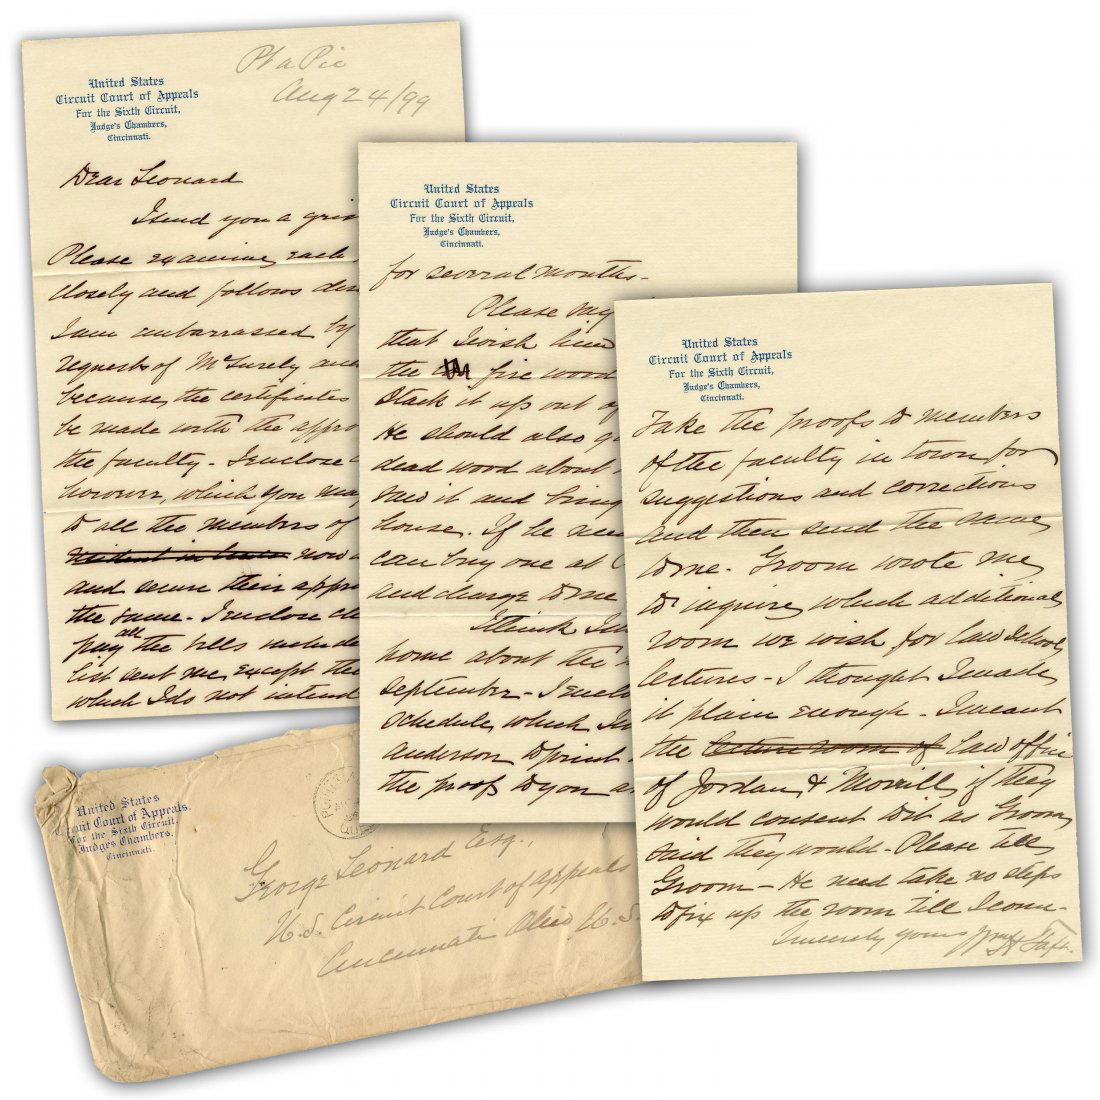 United States
Circuit Court of Appeals
For the Sixth Circuit,
Judge's Chambers,
Cincinnati.
Pt a Pic
Aug 24/99
Dear Leonard
I send you a
Please examine each
closely and follow
I am embarrassed by
requests of McSurely
because the certificates
be made with the
the faculty - I enclose
however, which you may
to all the members of
resident in now
and secure their
the same - I enclose
pay all the bills
list sent me except the
which I do not intend
United States
Circuit Court of Appeals
For the Sixth Circuit,
Judge's Chambers,
Cincinnati.
for several months -
Please
that I wish him
the fire wood
stack it up out of
He should also
dead wood about
saw it and bring
house. If he
can buy one at
and charge to me
I think
home about the
September - I
schedule which I
Anderson to print
the proof to you
United States
Circuit Court of Appeals
For the Sixth Circuit,
Judge's Chambers,
Cincinnati.
Take the proofs to members
of the faculty in town for
suggestions and corrections
and then send the same
to me. Groom wrote me
to inquire which additional
room we wish for Law School
lectures - I thought I made
it plain enough - I meant
the lecture room of law office
of Jordan & Morrill if they
would consent to it as Groom
said they would - Please tell
Groom - He need take no steps
to fix up the room till I come -
Sincerely yours Wm H Taft.
United States
Circuit Court of Appeals.
For the Sixth Circuit,
Judges Chambers.
Cincinnati.
George Leonard Esq.,
U.S. Circuit Court of Appeals
Cincinnati Ohio U.S.